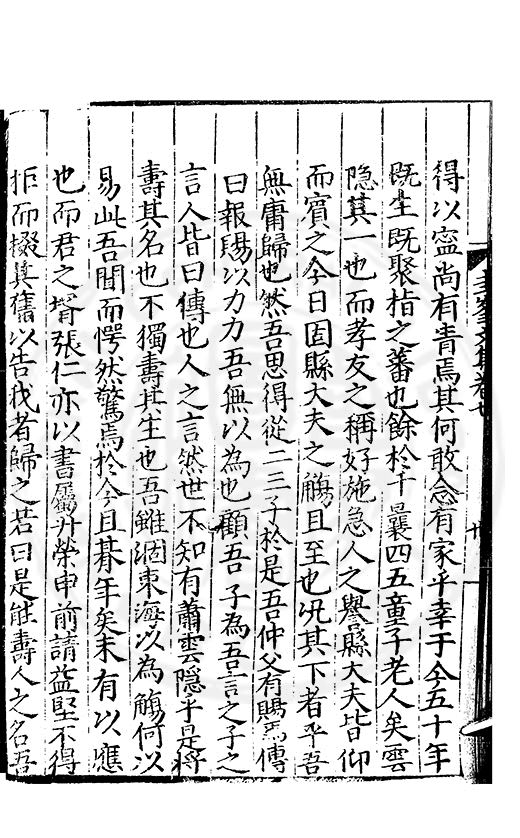 得以寍尚有青焉其何敢念有家乎幸于今五十年
既生既聚指之蕃也餘於千曩四五童子老人矣雲
隱其一也而孝友之稱好施急人之譽縣大夫皆仰
而賓之今日固縣大夫之觴且至也況其下者乎吾
無庸歸也然吾思得從二三子於是吾仲父有賜焉傳
曰報賜以力力吾無以為也顧吾子為吾言之子之
言人皆曰傳也人之言然世不知有蕭雲隱乎是將
壽其名也不獨壽其生也吾雖涸東海以為觴何以
易此吾聞而愕然驚焉於今且朞年矣未有以應
也而君之壻張仁亦以書屬升榮申前請益堅不得
拒而掇其舊以告我者歸之若曰是能壽人之名吾
文集卷七